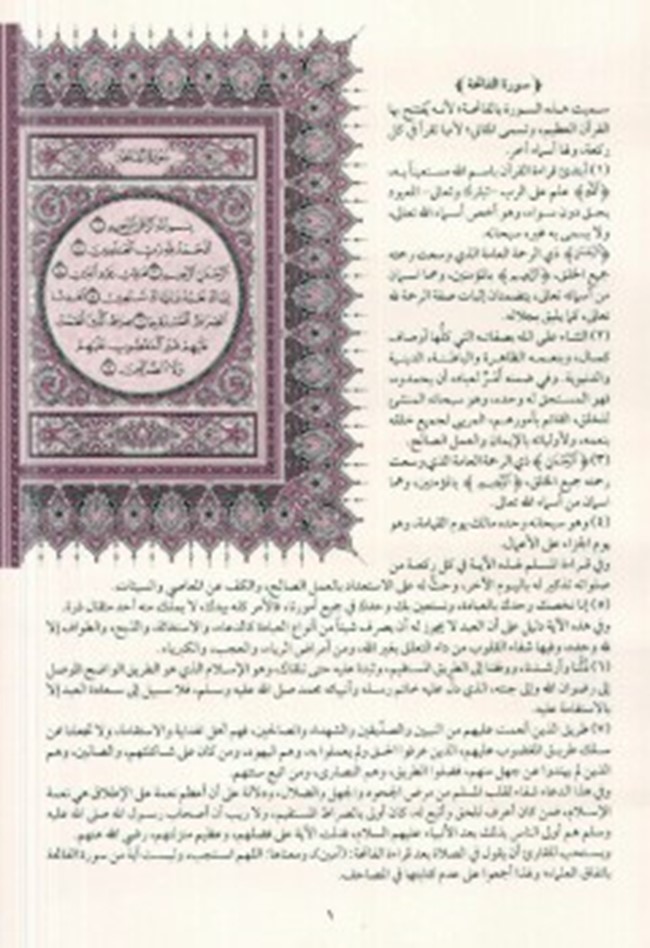 ﴿ سورة الفاتحة ﴾
سميت هذه السورة بالفاتحة؛ لأنه يفتتح بها
القرآن العظيم، وتسمى المثاني؛ لأنها تقرأ في كل
ركعة، ولها أسماء أخر.
(١) أبتدئ قراءة القرآن باسم الله مستعيناً به،
﴿الله﴾ علم على الرب -تبارك وتعالى- المعبود
بحق دون سواه، وهو أخص أسماء الله تعالى،
ولا يسمى به غيره سبحانه.
﴿الرحمن﴾ ذي الرحمة العامة الذي وسعت رحمته
جميع الخلق، ﴿الرحيم﴾ بالمؤمنين، وهما اسمان
من أسمائه تعالى، يتضمنان إثبات صفة الرحمة لله
تعالى، كما يليق بجلاله.
(٢) الثناء على الله بصفاته التي كلُّها أوصاف
كمال، وبنعمه الظاهرة والباطنة، الدينية
والدنيوية. وفي ضمنه أمْرٌ لعباده أن يحمدوه،
فهو المستحق له وحده، وهو سبحانه المنشئ
للخلق، القائم بأمورهم، المربي لجميع خلقه
بنعمه، ولأوليائه بالإيمان والعمل الصالح.
(٣) ﴿الرحمن﴾ ذي الرحمة العامة الذي وسعت
رحمته جميع الخلق، ﴿الرحيم﴾ بالمؤمنين، وهما
اسمان من أسماء الله تعالى.
(٤) وهو سبحانه وحده مالك يوم القيامة، وهو
يوم الجزاء على الأعمال.
وفي قراءة المسلم لهذه الآية في كل ركعة من
صلواته تذكير له باليوم الآخر، وحثٌّ له على الاستعداد بالعمل الصالح، والكف عن المعاصي والسيئات.
(٥) إنا نخصك وحدك بالعبادة، ونستعين بك وحدك في جميع أمورنا، فالأمر كله بيدك، لا يملك منه أحد مثقال ذرة.
وفي هذه الآية دليل على أن العبد لا يجوز له أن يصرف شيئاً من أنواع العبادة كالدعاء والاستغاثة والذبح والطواف إلا
لله وحده، وفيها شفاء القلوب من داء التعلق بغير الله، ومن أمراض الرياء والعجب، والكبرياء.
(٦) دُلَّنا وأرشدنا، ووفقنا إلى الطريق المستقيم، وثبتنا عليه حتى نلقاك، وهو الإسلام الذي هو الطريق الواضح الموصل
إلى رضوان الله وإلى جنته، الذي دلَّ عليه خاتم رسله وأنبيائه محمد صلى الله عليه وسلم، فلا سبيل إلى سعادة العبد إلا
بالاستقامة عليه.
(٧) طريق الذين أنعمت عليهم من النبيين والصدِّيقين والشهداء والصالحين، فهم أهل الهداية والاستقامة، ولا تجعلنا ممن
سلك طريق المغضوب عليهم، الذين عرفوا الحق ولم يعملوا به، وهم اليهود، ومن كان على شاكلتهم، والضالين، وهم
الذين لم يهتدوا عن جهل منهم، فضلوا الطريق، وهم النصارى، ومن اتبع سنتهم.
وفي هذا الدعاء شفاء لقلب المسلم من مرض الجحود والجهل والضلال، ودلالة على أن أعظم نعمة على الإطلاق هي نعمة
الإسلام، فمن كان أعرف للحق وأتبع له، كان أولى بالصراط المستقيم، ولا ريب أن أصحاب رسول الله صلى الله عليه
وسلم هم أولى الناس بذلك بعد الأنبياء عليهم السلام، فدلت الآية على فضلهم، وعظيم منزلتهم، رضي الله عنهم.
ويستحب للقارئ أن يقول في الصلاة بعد قراءة الفاتحة: (آمين)، ومعناها: اللهم استجب، وليست آية من سورة الفاتحة
باتفاق العلماء؛ ولهذا أجمعوا على عدم كتابتها في المصاحف.
سورة الفاتحة
بسم الله الرحمن الرحيم ١
الحمد لله رب العالمين ٢
الرحمن الرحيم ٣ مالك يوم الدين ٤
إياك نعبد وإياك نستعين ٥ اهدنا
الصراط المستقيم ٦ صراط الذين أنعمت
عليهم غير المغضوب عليهم
ولا الضالين ٧
١